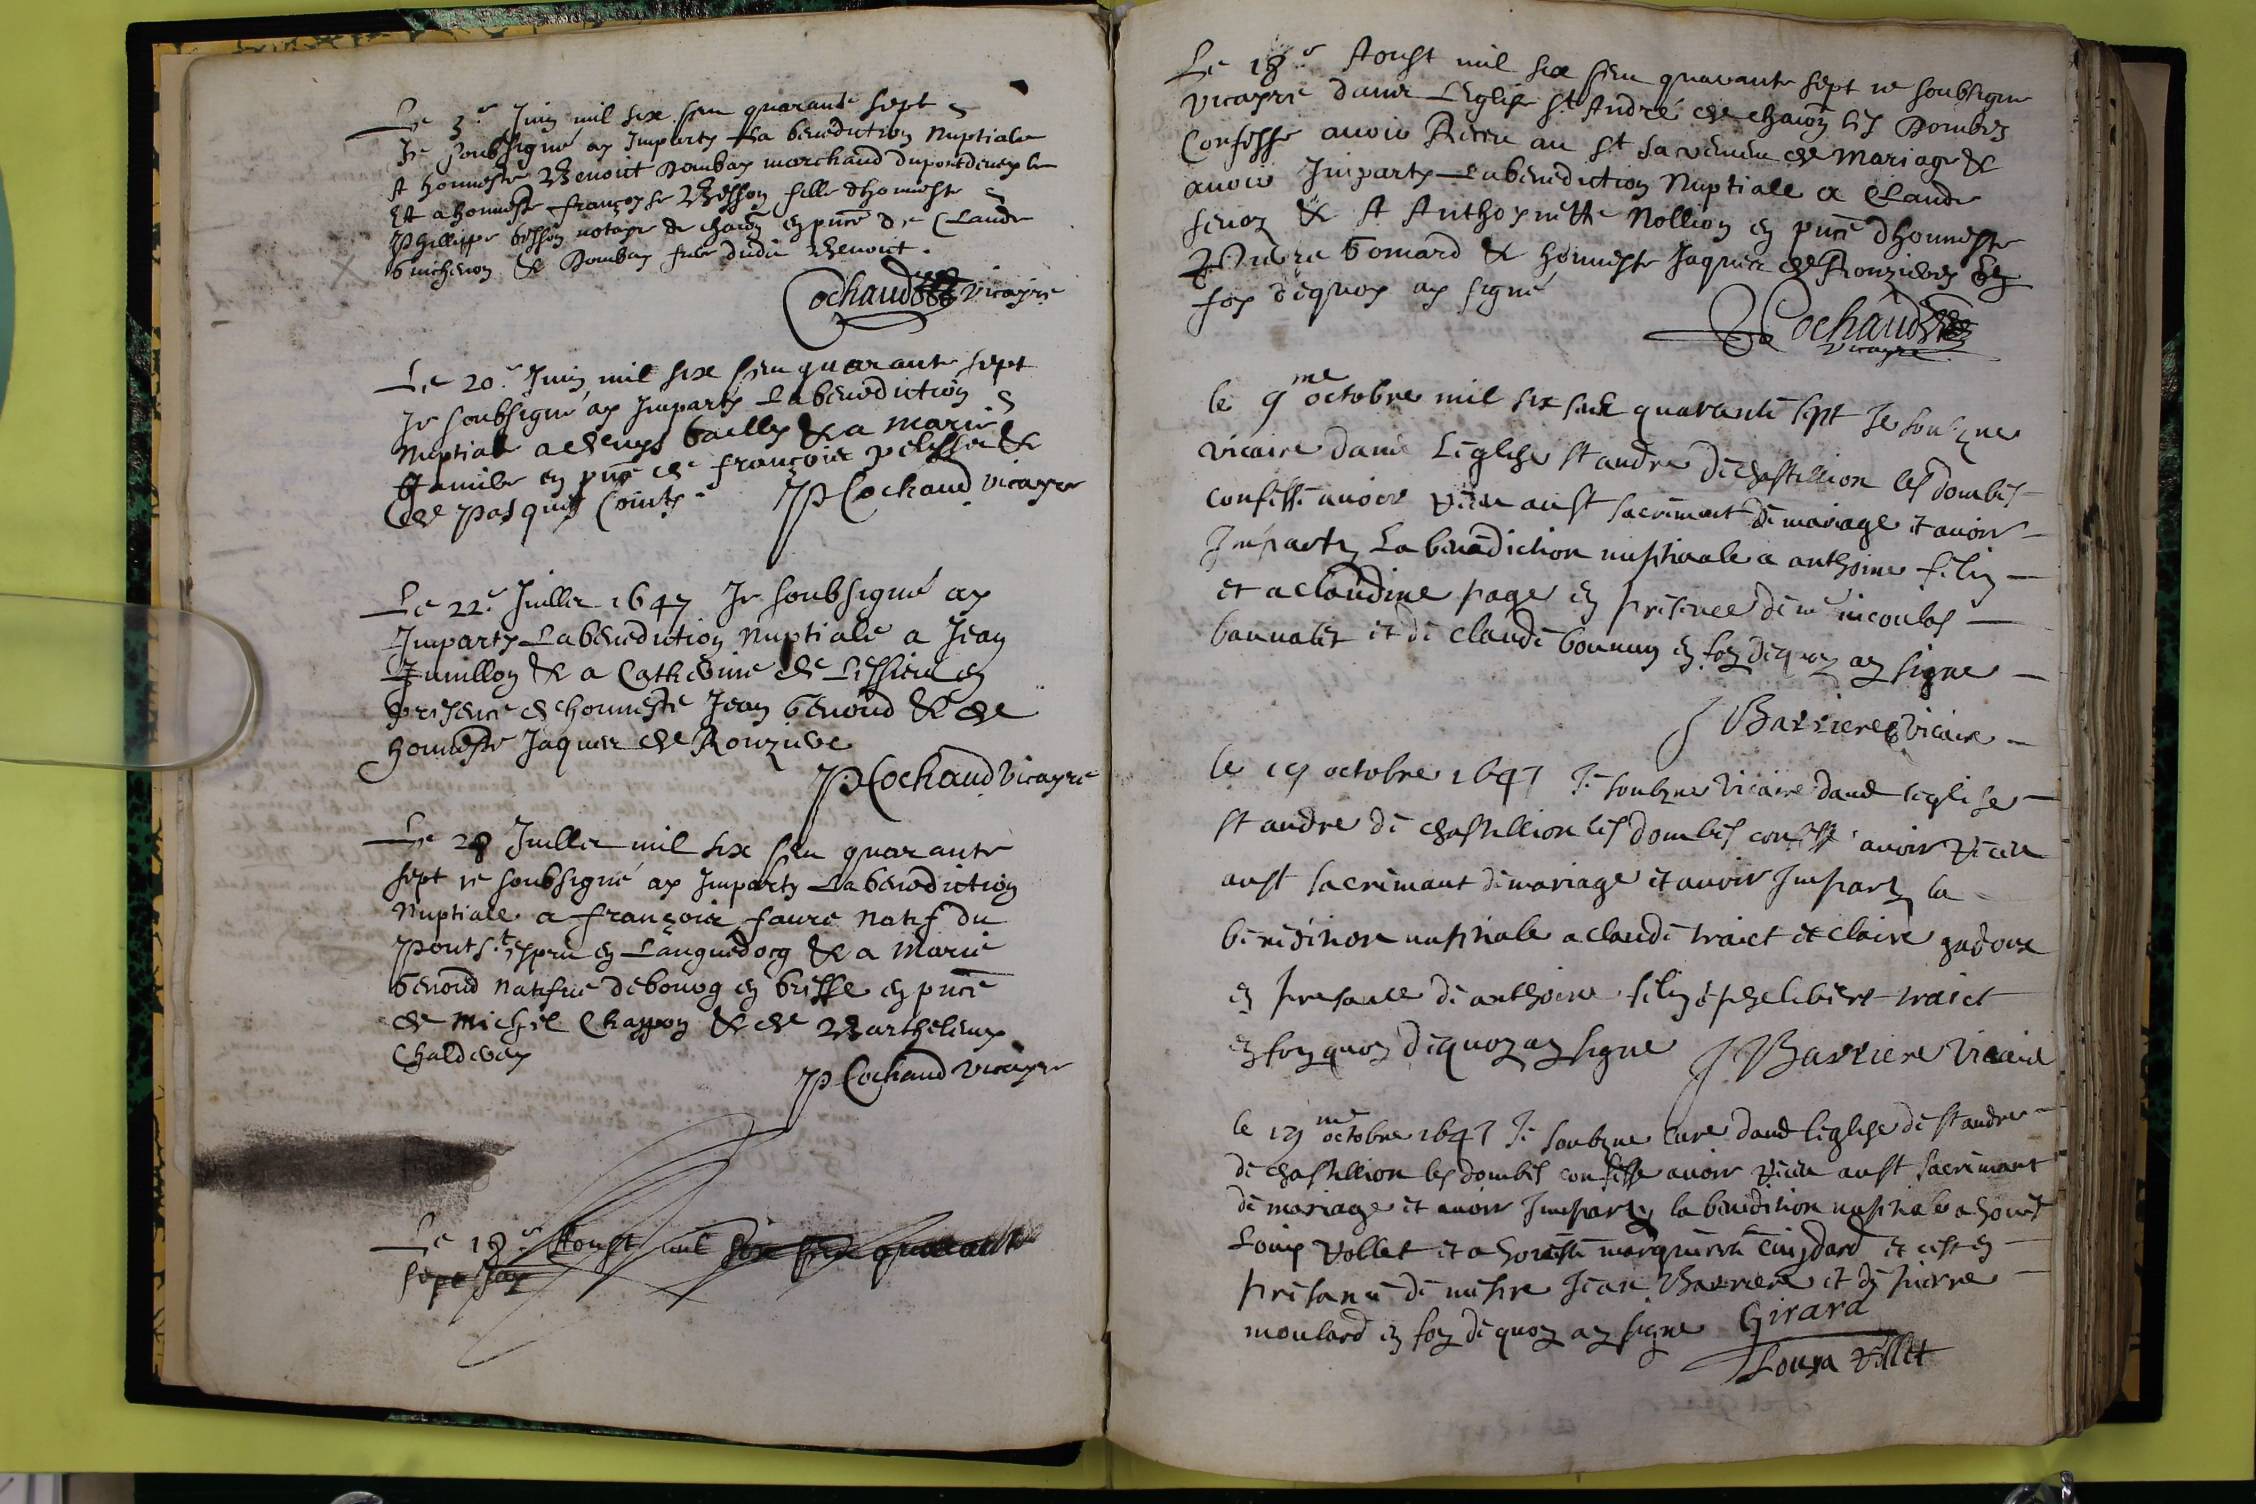 Le 3e Juin mil six sen quarante sept
Je soubsigné ay Imparty La benediction Nuptiale
A honneste Benoict Dombay marchand
Et a honneste françoyse Besson fille d'honneste
Phillippe besson notayre de chaon en pnce de Claude
& Dombay frere dudit Benoict.
Cochaud vicayre
Le 20e Juin mil six sen quarante sept
Je soubsigné ay Imparty La benediction
Nuptiale a denys bailly & a marie
en pnce de françois pelisson &
de Pasquis
JP Cochaud vicayre
Le 22e Juillet 1647 Je soubsigné ay
Imparty La benediction Nuptiale a Jean
Juuillon & a Catherine de en
presence de honneste Jean benond & de
honneste Jaques de Ronziere
JP Cochaud vicayre
Le 28 Juillet mil six sen quarante
sept ie soubsigné ay Imparty La benediction
Nuptiale a françois faure Natif du
Pont St esprit en Languedocq & a Marie
benond natifue de bourg en bresse en pnce
de Michel Chappon & de Barthelemy
Chaldeuey
JP Cochaud vicayre
Le 18e Aoust mil six sen quarante
sept Jay
Le 18e Aoust mil six sen quarante sept ie soubsigne
vicayre dans L'Eglise St André de chaon les Dombes
Confesse auoir Receu au st sacrement de Mariage &
auoir Imparty La benediction Nuptiale a Claude
& A Anthoynette Nollion en pnce d'honneste
Pierre bomard & honneste Jaques de Ronzieres En
foy dequoy ay signé
Cochaud
vicayre
le 9me octobre mil six sent quarante sept Je soubzne
vicaire dans L'eglise st andre de chastillion les dombes
confesse auoir receu au st sacrement de mariage et auoir
Imparty La benediction nuptiale a anthoine filiy
et a claudine page en presence de me nicoulas
bannalet et de claude en foy dequoy ay signe
J Barriere vicaire
le 19 octobre 1647 Je soubzne vicaire dans leglise
st andre de chastillion les dombes confesse auoir receu
au st sacremant de mariage et auoir Imparty la
benedition nuptiale a claude traict et claire
en presance de anthoine filiy et phelibert traict
en foy quoy dequoy ay signe J Barriere vicaire
le 19me octobre 1647 Je soubzne cure dans leglise de st andre
de chastillion les dombes confesse auoir receu au st sacrement
de mariage et auoir Imparty la benedition nuptiale a honeste
Louys vollet et a honeste marguerite cuizdard et cest en
presance de messire Jean Barriere et de pierre
moulard en foy de quoy ay signe Girard
Louys Vollet